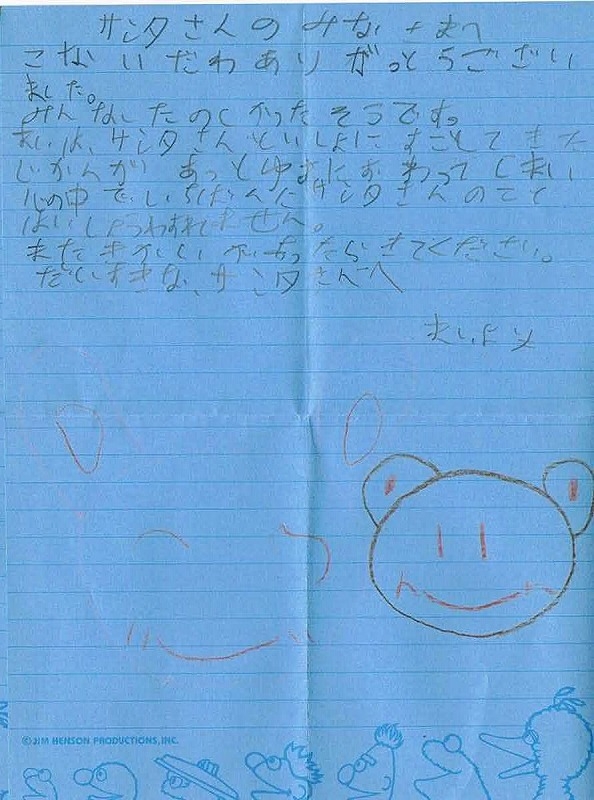 サンタさんの みなさまへ
こないだわありがっとうござい
ました。
みんなもたのしかったそうです。
まいは、サンタさんといしょにすごしてきた
じかんが あっとゆまにおわってしまい
心の中でいちばんにサンタさんのこと
はいしょうわすれません。
またきかいがあったらきてください。
だいすきな、サンタさんへ
まいより
©JIM HENSON PRODUCTIONS, INC.